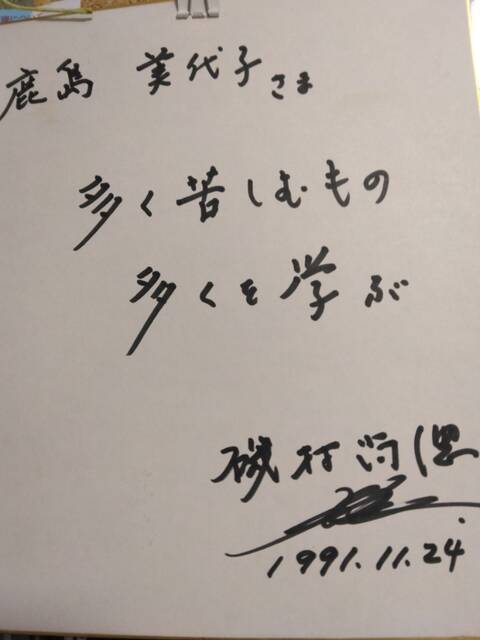 鹿島 美代子さま
多く苦しむもの
多くを学ぶ
磯村尚徳
1991.11.24